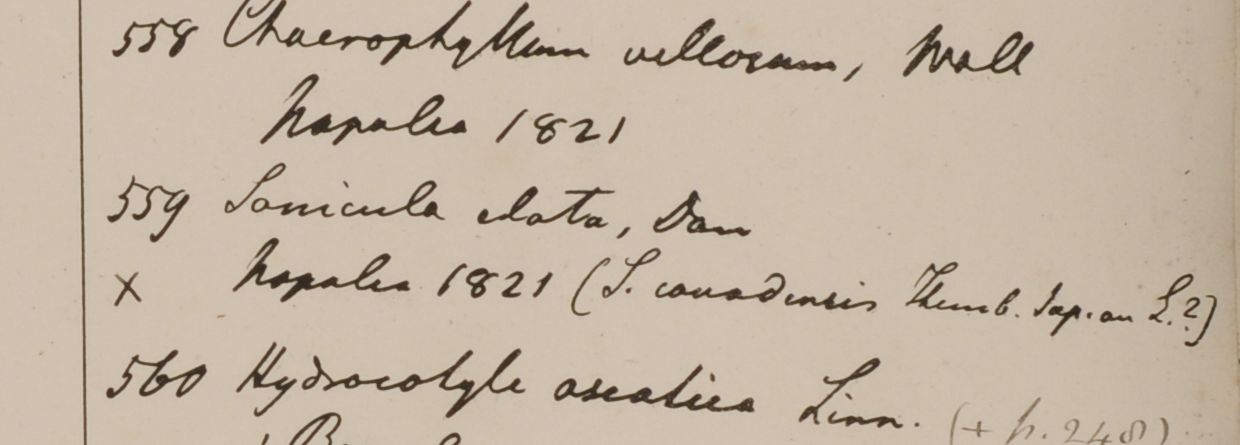 558 Chaerophyllum villosum, Wall
Napalia 1821
559 Sanicula elata, Don
× Napalia 1821 (S. canadensis Thunb. Jap. an L.?)
560 Hydrocotyle asiatica Linn. (+ p. 248)